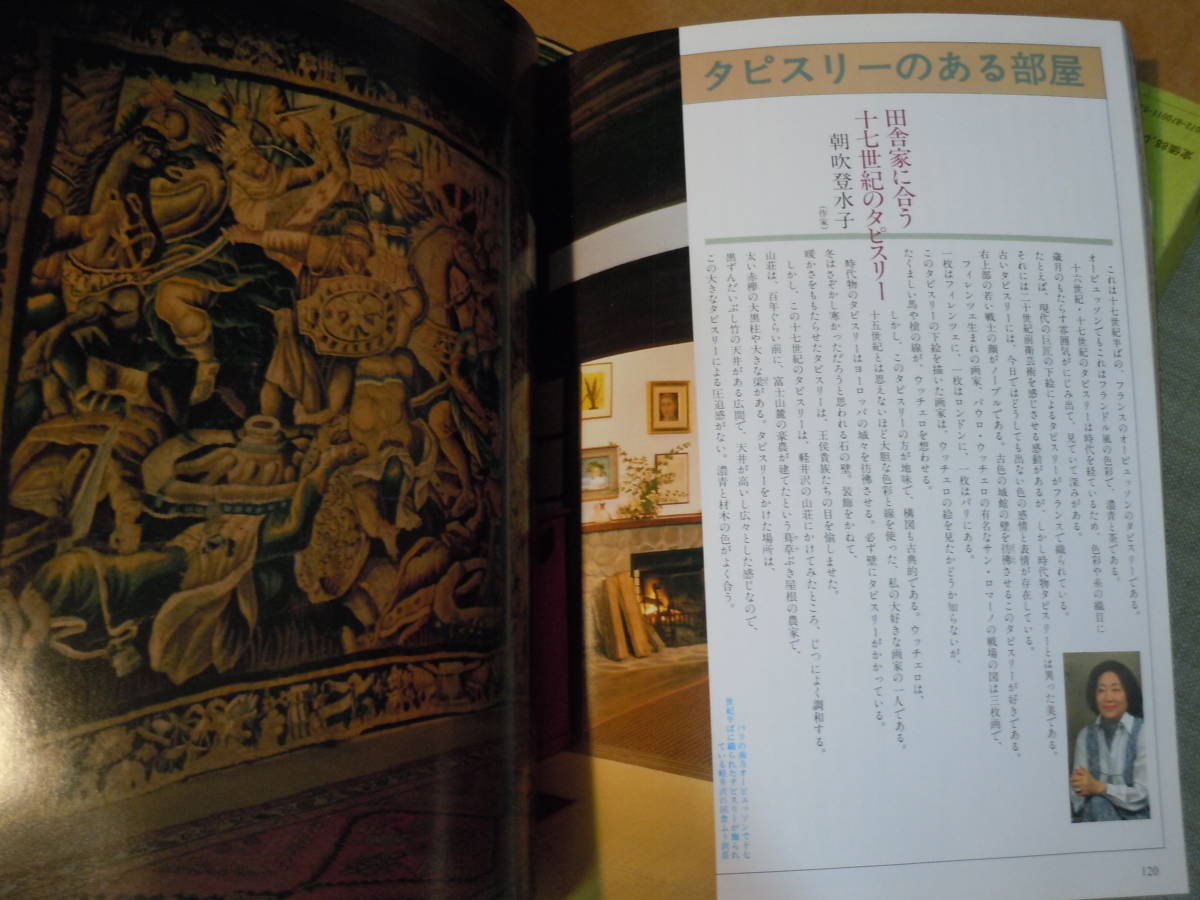 タピスリーのある部屋
田舎家に合う
十七世紀のタピスリー
朝吹登水子
(作家)
これは十七世紀半ばの、フランスのオービュッソンのタピスリーである。
オービュッソンでもこれはフランドル風の色彩で、濃青と茶である。
十六世紀・十七世紀のタピスリーは時代を経ているため、色彩や糸の織目に
歳月のもたらす雰囲気がにじみ出て、見ていて深みがある。
たとえば、現代の巨匠の下絵によるタピスリーがフランスで織られている。
それには二十世紀前衛芸術を感じさせる感動があるが、しかし時代物タピスリーとは異った美である。
古いタピスリーには、今日ではどうしても出ない色の感情と表情が存在している。
右上部の若い戦士の顔がノーブルである。古色の城館の壁を彷彿させるこのタピスリーが好きである。
フィレンツェ生まれの画家、パウロ・ウッチェロの有名なサン・ロマーノの戦場の図は三枚画で、
一枚はフィレンツェに、一枚はロンドンに、一枚はパリにある。
このタピスリーの下絵を描いた画家は、ウッチェロの絵を見たかどうか知らないが、
たくましい馬や槍の線が、ウッチェロを想わせる。
しかし、このタピスリーの方が地味で、構図も古典的である。ウッチェロは、
十五世紀とは思えないほど大胆な色彩と線を使った、私の大好きな画家の一人である。
時代物のタピスリーはヨーロッパの城々を彷彿させる。必ず壁にタピスリーがかかっている。
冬はさぞかし寒かっただろうと思われる石の壁。装飾をかねて、
暖かさをももたらせたタピスリーは、王侯貴族たちの目を愉しませた。
しかし、この十七世紀のタピスリーは、軽井沢の山荘にかけてみたところ、じつによく調和する。
山荘は、百年ぐらい前に、富士山麓の豪農が建てたという葺草ぶき屋根の農家で、
太い赤欅の大黒柱や大きな梁がある。タピスリーをかけた場所は、
黒ずんだいぶし竹の天井がある広間で、天井が高いし広々とした感じなので、
この大きなタピスリーによる圧迫感がない。濃青と材木の色がよく合う。
パリの南方オービュッソンで十七
世紀半ばに織られたタピスリーが飾られ
ている軽井沢の田舎ふう山荘
120